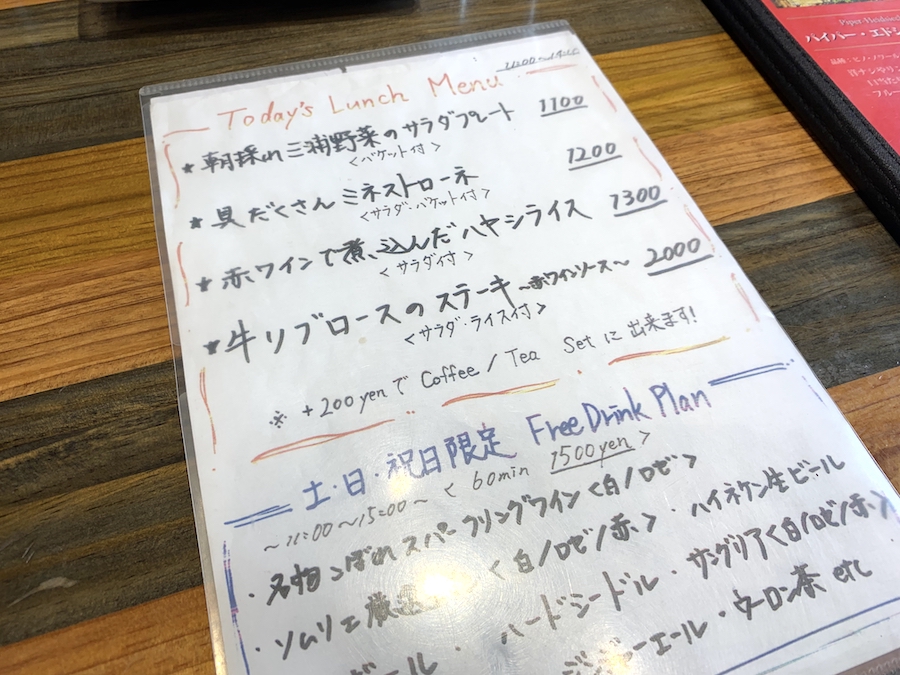 Today's Lunch Menu
★朝採れ三浦野菜のサラダプレート 1100
<バケット付>
★具だくさんミネストローネ 1200
<サラダ・バケット付>
★赤ワインで煮込んだハヤシライス 1300
<サラダ付>
★牛リブロースのステーキ～赤ワインソース～ 2000
<サラダ・ライス付>
※ +200yenで Coffee / Tea Set に出来ます!
土・日・祝日限定 Free Drink Plan
～11:00～15:00～ < 60min 1500yen >
・名物こぼれスパークリングワイン<白/ロゼ>
・ソムリエ厳選 <白/ロゼ/赤>・ハイネケン生ビール
ール・ハードシードル・サングリア<白/ロゼ/赤>
ジンジャーエール・ウーロン茶 etc
Piper-Heidsieck
パイパー・エドシ